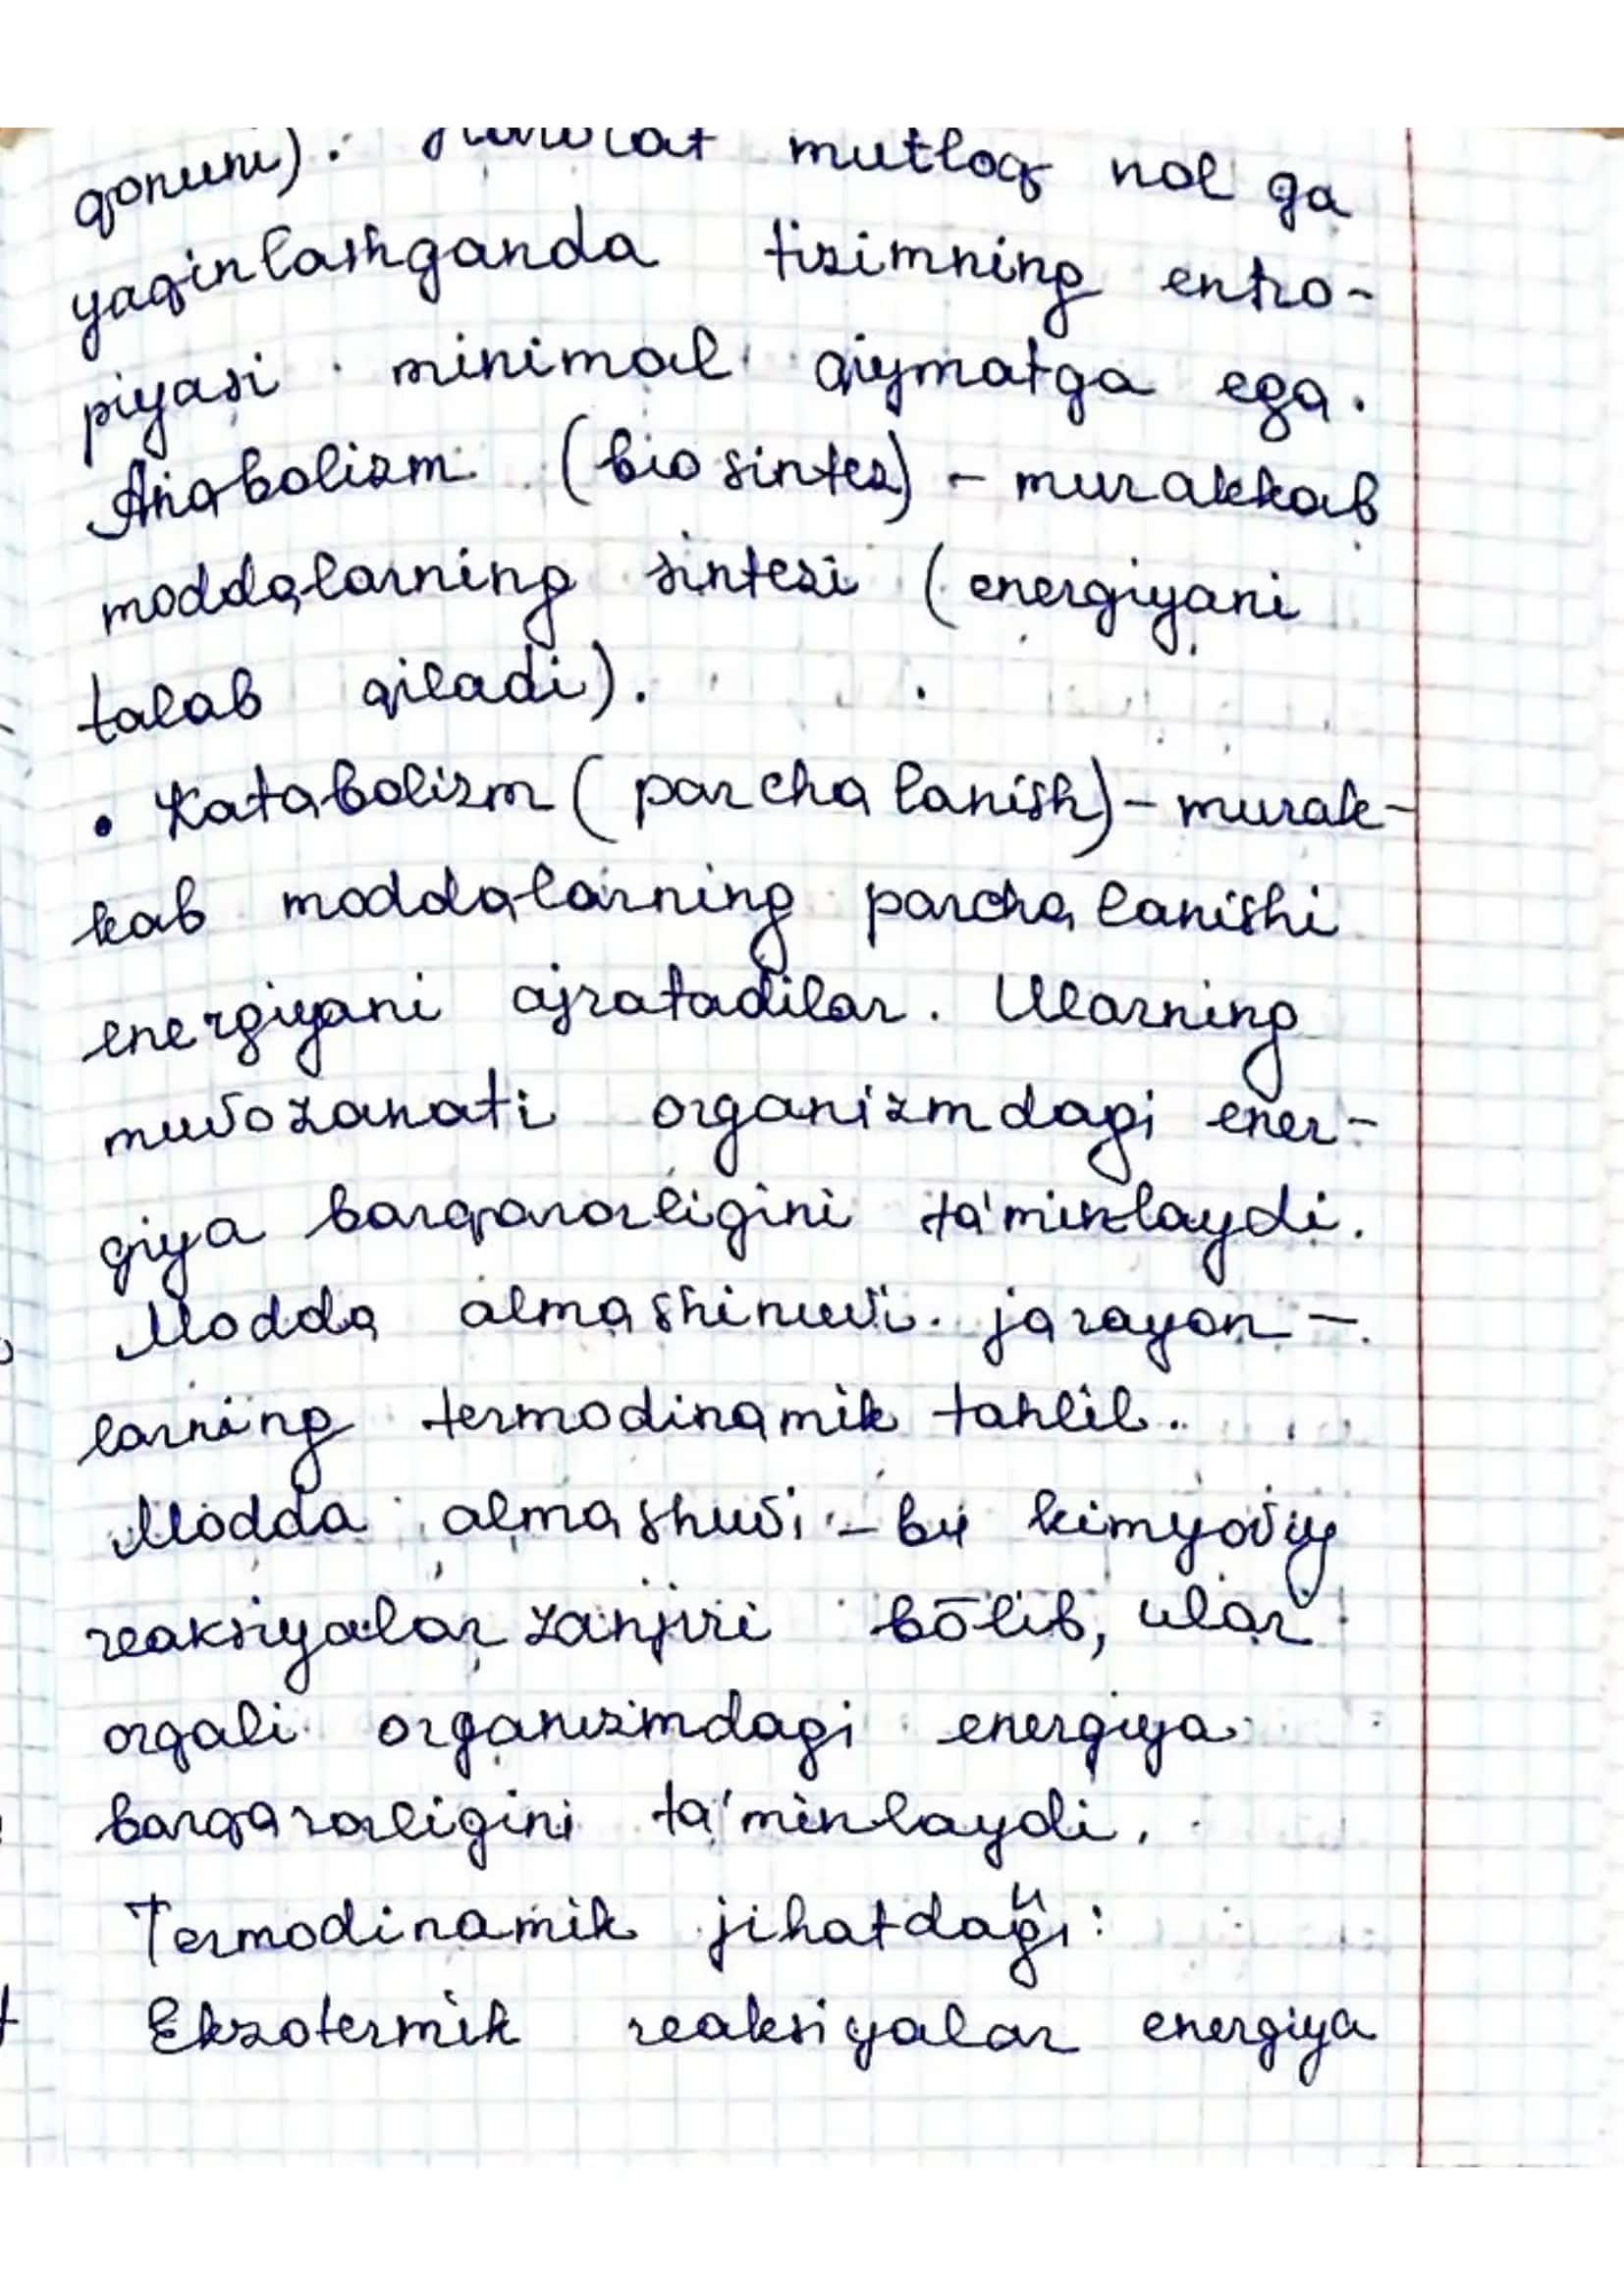 qonuni). Harorat mutloq nol ga
yaqinlashganda tizimning entro-
piyasi minimal qiymatga ega.
Anabolizm (biosintez) - murakkab
moddalarning sintezi (energiyani
talab qiladi).
• Katabolizm (parchalanish) - murak-
kab moddalarning parchalanishi
energiyani ajratadilar. Ularning
muvozanati organizmdagi ener-
giya barqarorligini ta'minlaydi.
Modda almashinuvi jarayon-
larning termodinamik tahlil.
Modda almashuvi - bu kimyoviy
reaksiyalar zanjiri bōlib, ular
orqali organizmdagi energiya
barqarorligini ta'minlaydi.
Termodinamik jihatdagi:
Ekzotermik reaksiyalar energiya